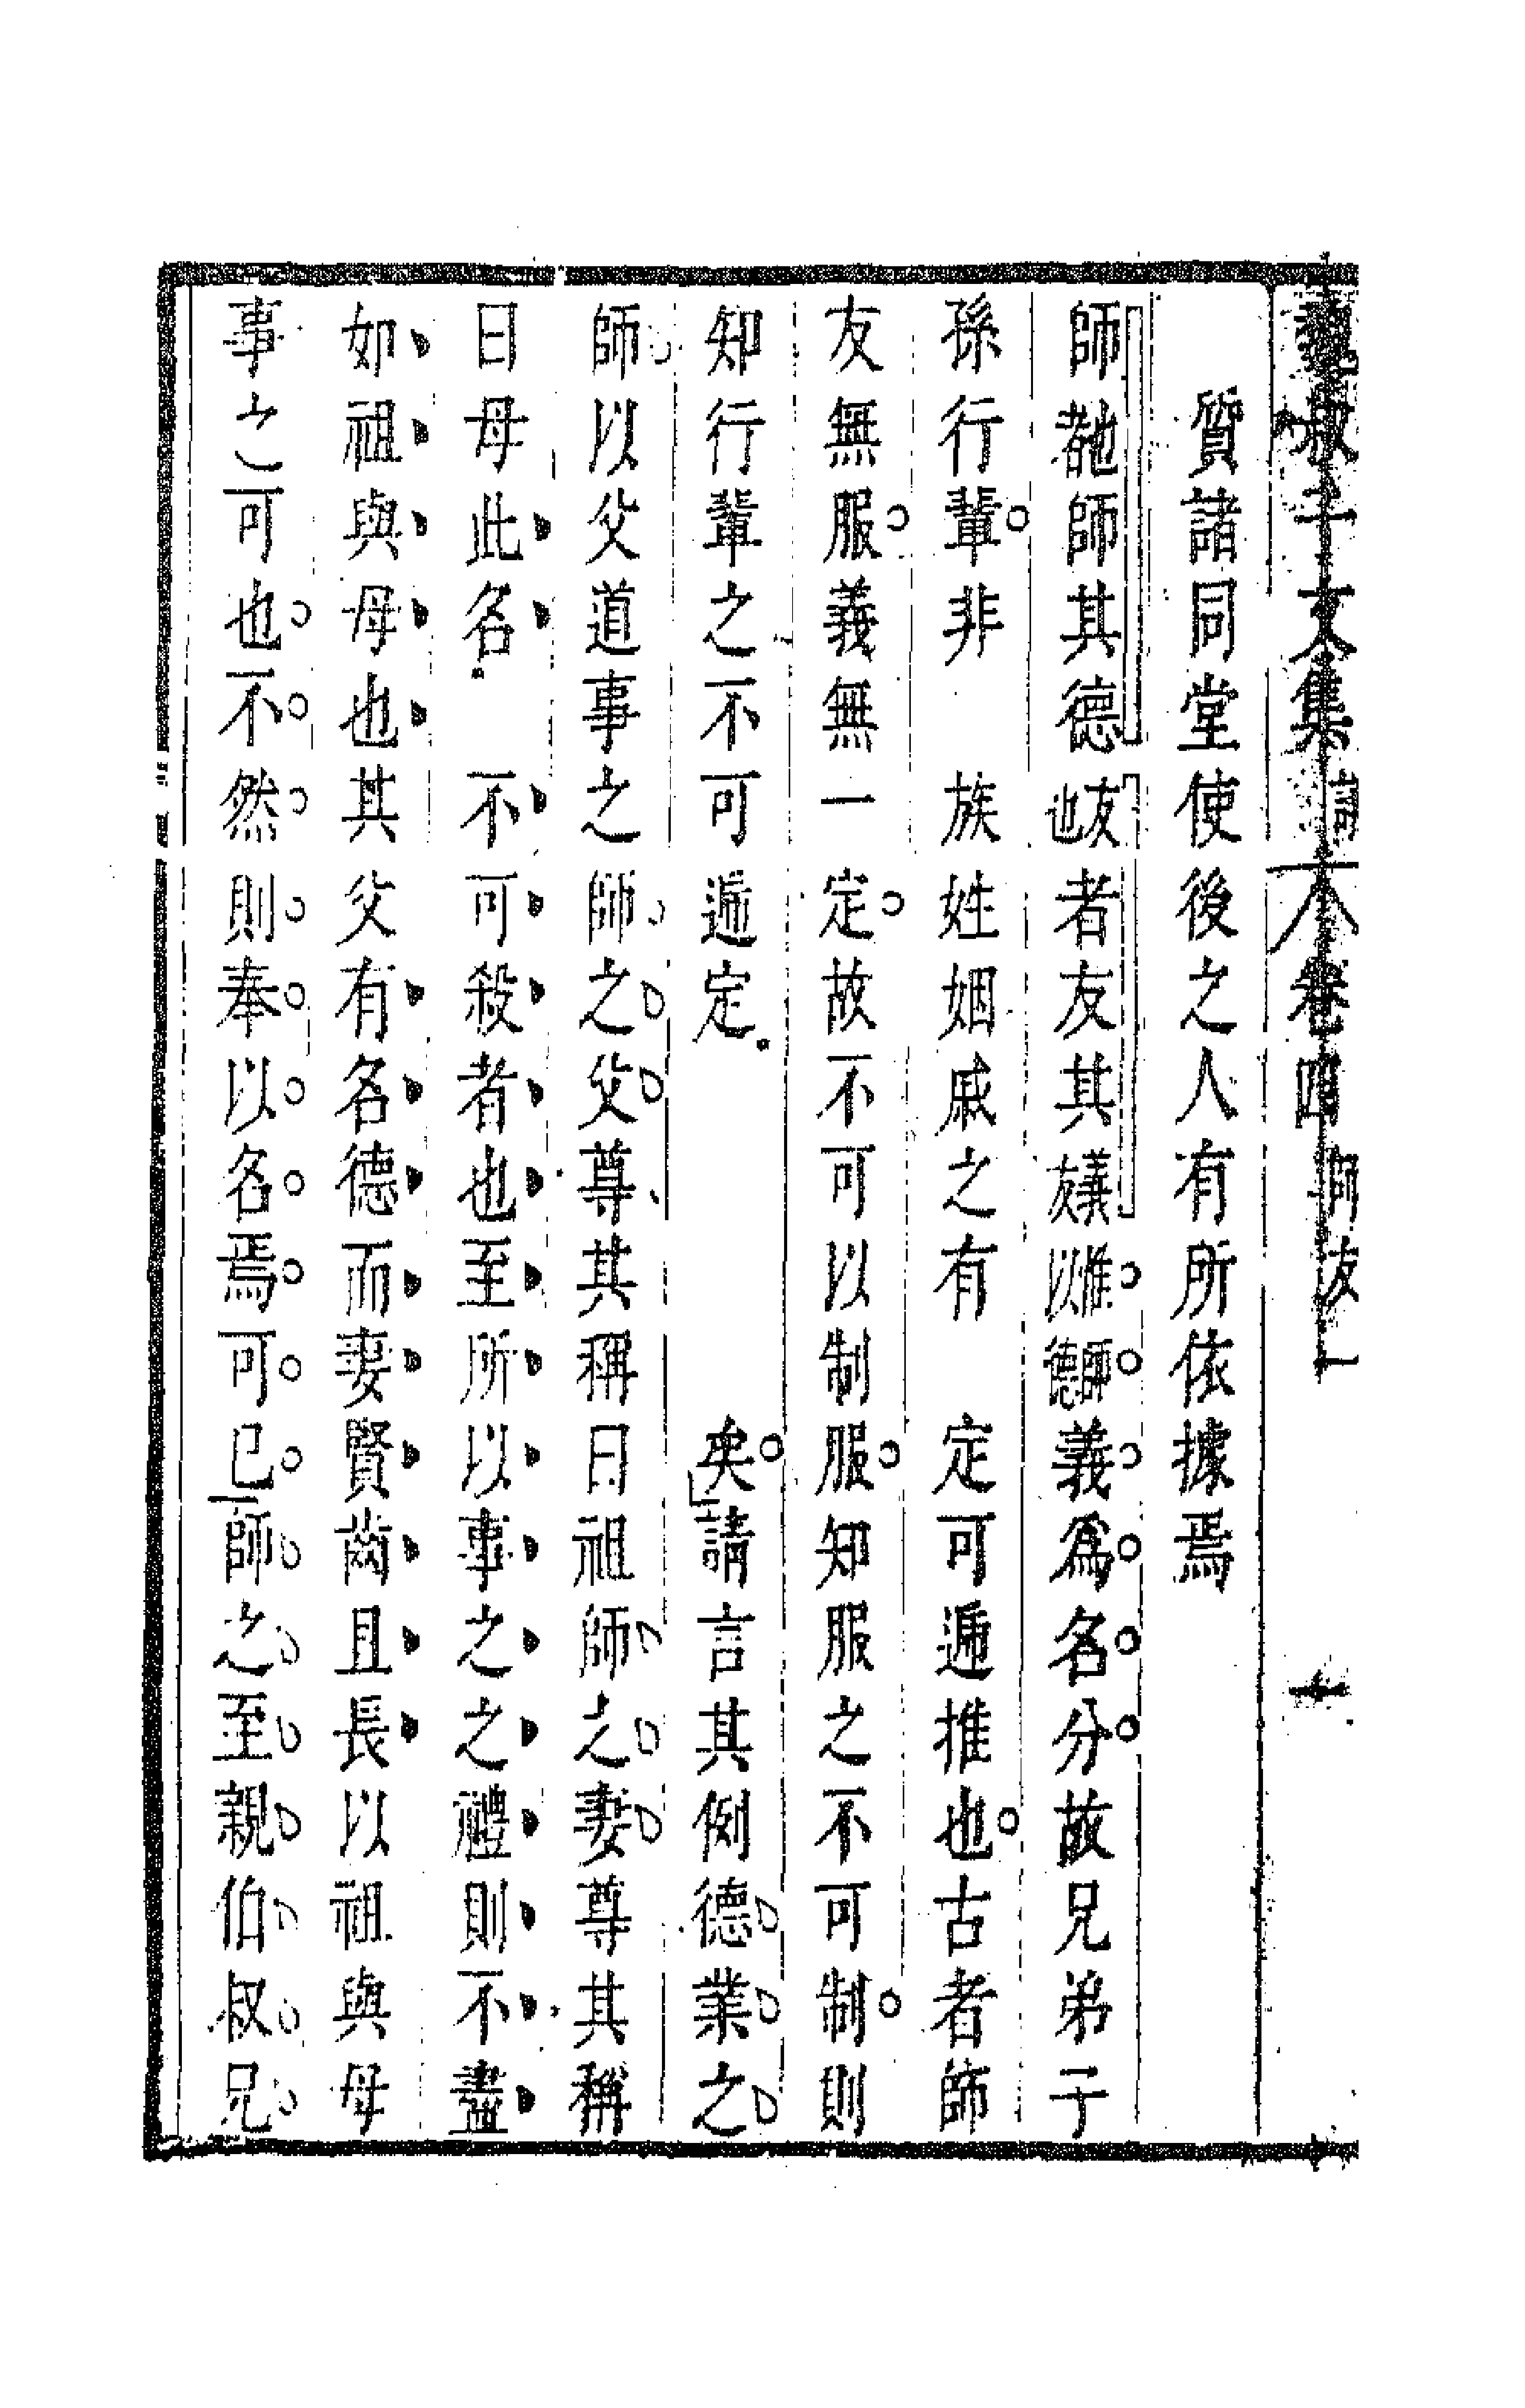 叔子文集 卷四
質諸同堂使後之人有所依據焉
師也者師其德友也者友其義惟師友以德義為名分故兄弟子
孫行輩非 族姓姻戚之有 定可遞推也古者師
友無服義無一定故不可以制服知服之不可制則
知行輩之不可遞定 矣請言其例德業之
師以父道事之師之父尊其稱曰祖師之妻尊其稱
曰母此名 不可殺者也至所以事之之禮則不盡
如祖與母也其父有名德而妻賢齒且長以祖與母
事之可也不然則奉以名焉可已師之至親伯叔兄